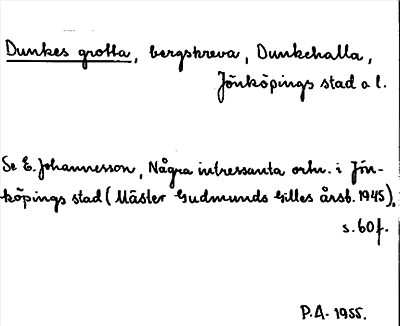 Dunkes grotta, bergskreva, Dunkehalla,
Jönköpings stad o l.
Se E. Johannesson, Några intressanta ortn. i Jön-
köpings stad (Mäster Gudmunds Gilles årsb. 1945),
s. 60 f.
P.A. 1955.